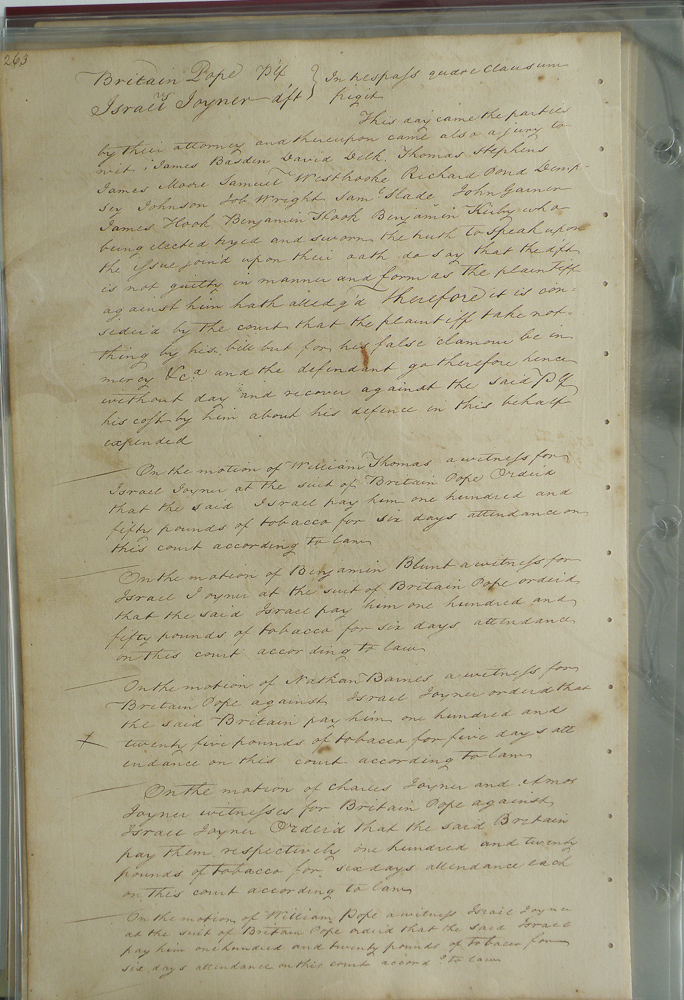 263
Britain Pope Plf } In trespass quare clausum
vs
Israel Joyner dft } frigit
This day came the parties
by their attorney and thereupon came also a jury to
wit; James Basden David Delk, Thomas Stephens
James Moore Samuel Westbrooke Richard Pond Demp-
sey Johnson Job Wright Saml Slade John Gainer
James Hook Benjamin Hook Benjamin Kirby who
being elected tryed and sworn the truth to speak upon
the issue join'd upon their oath do say that the dft
is not guilty in manner and form as the plaintiff
against him hath alledg'd Therefore it is con-
sider'd by the court that the plaintiff take not-
thing by his bill but for his false clamour be in
mercy &c.a and the defendant go therefore hence
without day and recover against the said Plf
his cost by him about his defence in this behalf
expended
On the motion of William Thomas a witness for
Israel Joyner at the suit of Britain Pope Order'd
that the said Israel pay him one hundred and
fifty pounds of tobacco for six days attendance on
this court according to law
On the motion of Benjamin Blunt a witness for
Israel Joyner at the suit of Britain Pope order'd
that the said Israel pay him one hundred and
fifty pounds of tobacco for six days attendance
on this court according to law
On the motion of Nathan Barnes a witness for
Britain Pope against Israel Joyner order'd that
the said Britain pay him one hundred and
twenty five pounds of tobacco for five days att
endance on this court according to law
On the motion of Charles Joyner and Amos
Joyner witnesses for Britain Pope against
Israel Joyner Order'd that the said Britain
pay them respectively one hundred and twenty
pounds of tobacco for six days attendance each
on this court according to law
On the motion of William Pope a witness Israel Joyner
at the suit of Britain Pope order'd that the said Israel
pay him one hundred and twenty pounds of tobacco for
six days attendance on this court accord.g to law